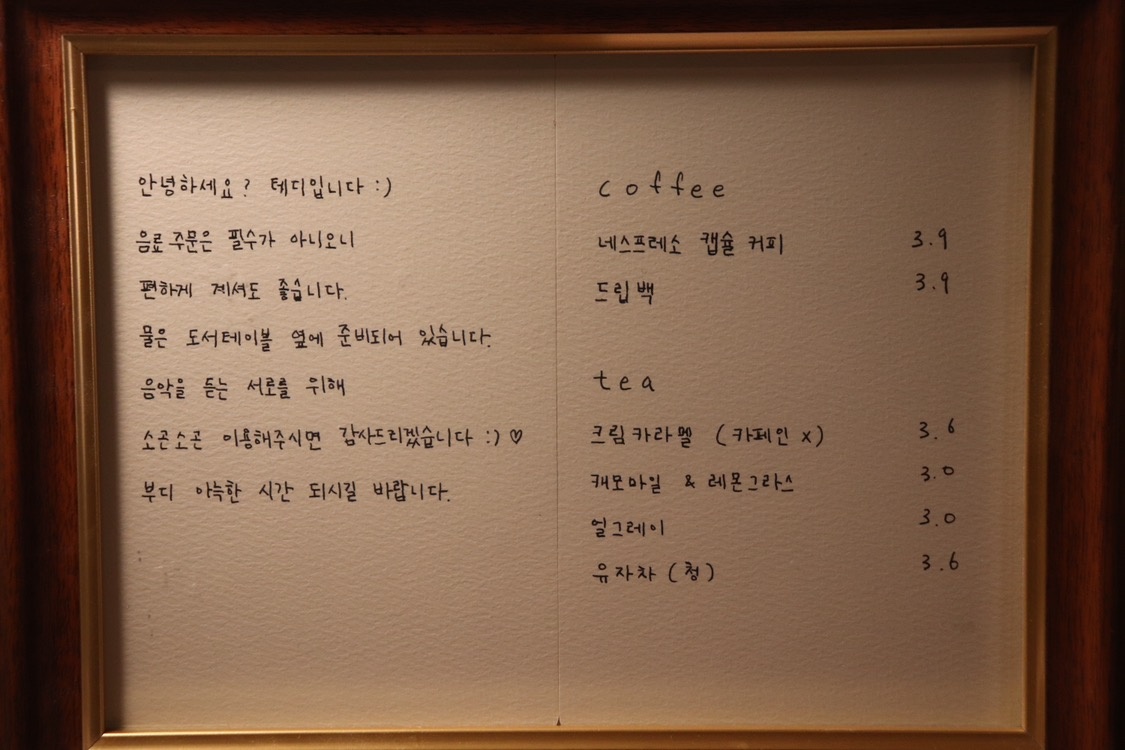 안녕하세요? 테디입니다 :)
음료 주문은 필수가 아니오니
편하게 계셔도 좋습니다.
물은 도서테이블 옆에 준비되어 있습니다.
음악을 듣는 서로를 위해
소곤소곤 이용해주시면 감사드리겠습니다 :) ♡
부디 아늑한 시간 되시길 바랍니다.
coffee
네스프레소 캡슐 커피 3.9
드립백 3.9
tea
크림카라멜 (카페인 x) 3.6
캐모마일 & 레몬그라스 3.0
얼그레이 3.0
유자차 (청) 3.6